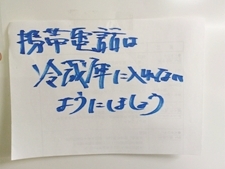 携帯電話は
冷蔵庫に入れない
ようにしましょう